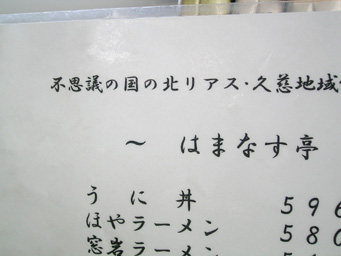 不思議の国の北リアス・久慈地域
～ はまなす亭
うに丼 596
ほやラーメン 580
窓岩ラーメン